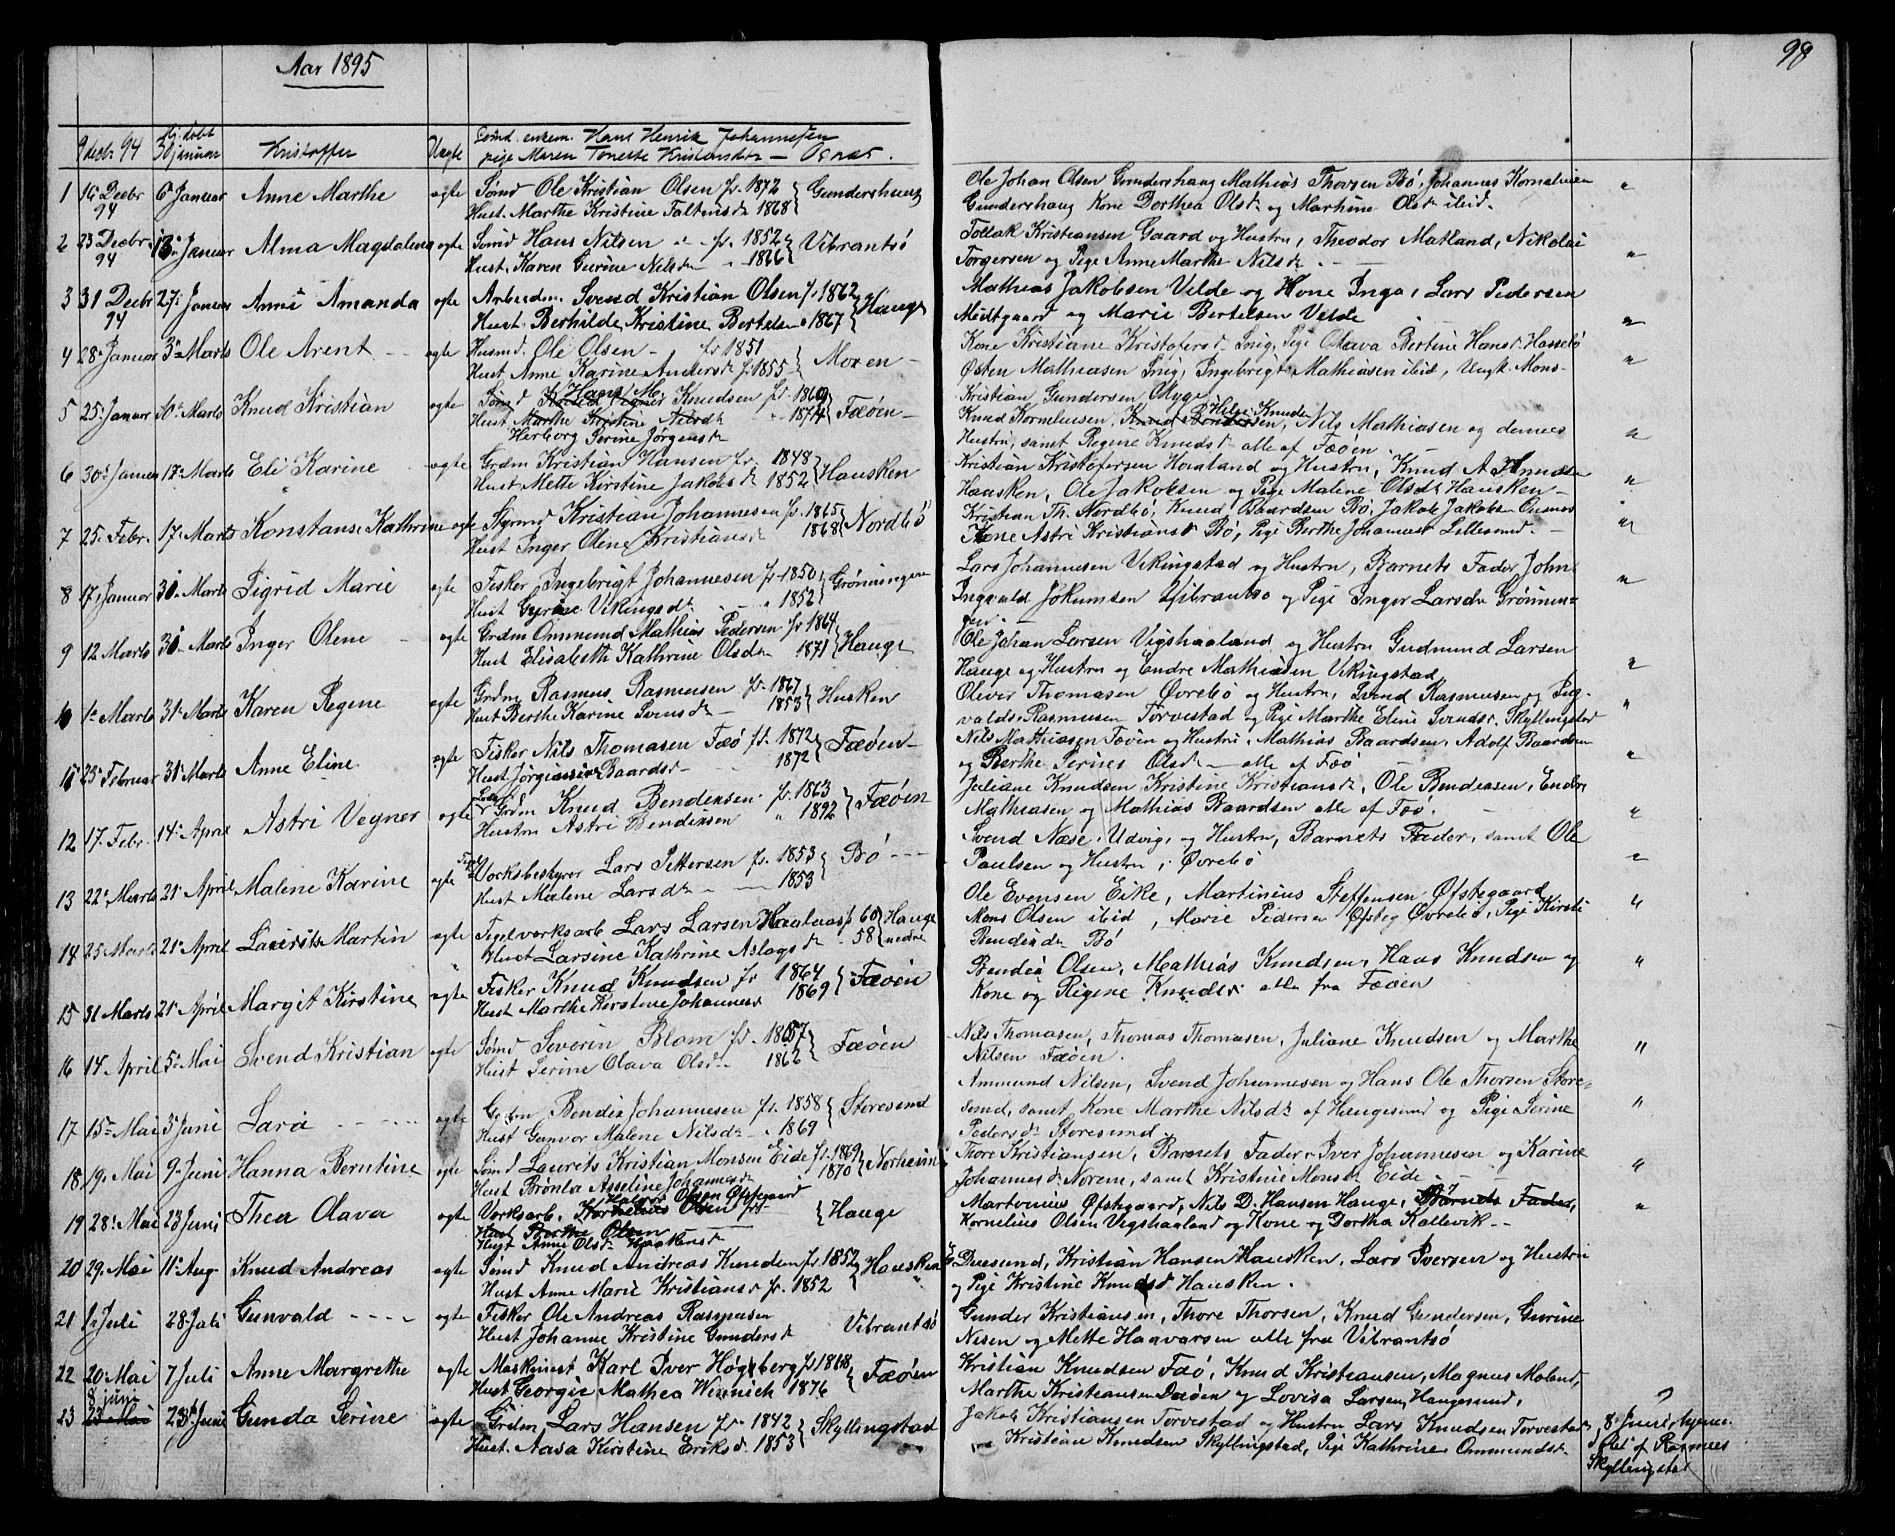 98
Aar 1895
9 decbr 94 30 januar Kristoffer Uægte Sømd. enkem. Hans Henrik Johannesen
hj. døbt
pige Maren Tomette Kristensdr —
1 16 Decbr 94 6 Januar Anne Marthe ægte Sømd Ole Kristian Olsen f. 1872 Gundershaug
Hust. Marthe Kristine 1868
Ole Johan Olsen Gundershaug Mathias Thorsen Bø, Johannes Korneliusen
Gundershaug Kone Dorthea Olsdr og Marthine Olsdr ibid.
2 23 Decbr 94 13 Januar Alma Magdalena ægte Sømd Hans Nilsen f. 1852 Vibrantsø
Hust. Karen Gurine Nilsdr 1866
Tollak Kristiansen Gaard og Hustru, Theodor Matland, Nikolai
Torgersen og Pige Anne Marthe Nilsdr
3 31 Decbr 94 27 Januar Anne Amanda ægte Arbeidm. Svend Kristian Olsen f. 1862 Hauge
Hust. Berhilde Kristine Bertelsen 1867
Mathias Jakobsen Velde og Kone Inga, Lars Pedersen
Midtgaard og Marie Bertelsen Velde
4 28 Januar 3 Marts Ole Arent ægte Husmd. Ole Olsen f. 1851 Moren
Hust. Anne Karine Andersdr f. 1855
Kone Kristiane Kristofersdr Snig, Pige Olava Bertine Hansdr Hasselø
Østen Mathiasen Snig, Ingebrigt Mathiasen ibid, Ungk. Mons
Kristian Gundersen Myge
5 25 Januar 10 Marts Knud Kristian ægte Sømd Hans M. Knudsen f. 1869 Fæøen
Hust Marthe Kristine 1874
Herborg Serine Jørgensdr
Knud Korneliusen, Helge Knudsen, Nils Mathiasen og dennes
Hustru, samt Regine Knudsdr alle af Fæøen
6 30 Januar 17 Marts Eli Karine ægte Grdm Kristian Hansen f. 1848 Hausken
Hust Mette Kirstine Jakobsdr 1852
Kristian Kristofersen Haaland og Hustru, Knud A Knudsen
Hausken, Ole Jakobsen og Pige Malene Olsdr Hausken
7 25 Febr. 17 Marts Konstanse Kathrine ægte Styrmd Kristian Johannesen f. 1865 Nordbø
Hust Inger Olene Kristiansdr 1868
Kristian Th. Nordbø, Knud Baardsen Bø, Jakob Jakobsen
Kone Astri Kristiansdr Bø, Pige Berthe Johannesdr Lillesund.
8 17 Januar 31 Marts Sigrid Marie ægte Fisker Ingebrigt Johannesen f. 1850 Grønningen
Hust Gyrine Vikingsdr 1852
Lars Johannesen Vikingstad og Hustru, Barnets Fader John
Ingvald Jokumsen Vibrantsø og Pige Inger Larsdr Grønnin-
gen.
9 12 Marts 31 Marts Inger Olene ægte Grdm Ommund Mathias Pedersen f. 1864 Hauge
Hust Elisabeth Kathrine Olsdr 1871
Ole Johan Larsen Vigshaaland og Hustru Gudmund Larsen
Hauge og Hustru og Endre Mathiasen Vikingstad
10 1 Marts 31 Marts Karen Regine ægte Grdm Rasmus Rasmussen f. 1867 Husken
Hust Berthe Karine Svensdr 1853
Oliver Thomasen Øvrebø og Hustru, Svend Rasmussen og Ing-
vald Rasmusen Torvestad og Pige Marthe Eline Svendsdr Skyllingstad
11 25 Februar 31 Marts Anne Eline ægte Fisker Nils Thomasen Fæø f. 1872 Fæøen
Hust Baardsdr 1872
Nils Mathiasen Fæøen og Hustru, Mathias Baardsen, Adolf Baardsen
og Berthe Serine Olsdr — alle af Fæø
12 17 Febr. 14 April Astri Vegner ægte Grdm Knud Bendiksen f. 1863 Fæøen
Hustru Astri Bendiksen 1892
Juliane Knudsen Kristine Kristiansdr, Ole Bendiksen, Endre
Mathiasen og Mathias Baardsen alle af Fæø.
13 22 Marts 21 April Malene Karine ægte Værksbestyrer Lars Pettersen f. 1853 Bø
Hust Malene Larsdr 1853
Svend Næse, Udvig, og Hustru, Barnets Fader, samt Ole
Paulsen og Hustru, Øvrebø
14 25 Marts 21 April Laurits Martin ægte Tegelværksarb Lars Larsen f 60 Hauge
Hust Larsine Kathrine Aslagsdr 58 nedre
Ole Evensen Eike, Martinius Steffensen Øfstegaard
Mons Olsen ibid, Marie Pedersen Øfsteg Øvrebø, Pige Kirsti
Bendixdr Bø
15 31 Marts 21 April Margit Kirstine ægte Fisker Knud Knudsen f. 1864 Fæøen
Hust Marthe Kirstine Johannesdr 1869
Bendix Olsen, Mathias Knudsen, Hans Knudsen og
Kone og Regine Knudsdr alle fra Fæøen
16 14 April 5 Mai Svend Kristian ægte Sømd Severin Blom f. 1867 Fæøen
Hust Serine Olava Olsdr 1862
Nils Thomasen, Thomas Thomasen, Juliane Knudsen og Marthe
Nilsen Fæøen.
17 15 Mai 3 Juni Lara ægte Grdm Bendix Johannesen f. 1858 Storesund
Hust Gunvor Malene Nilsdr 1869
Ammund Nilsen, Svend Johannesen og Hans Ole Thorsen Store-
sund, samt Kone Marthe Nilsdr af Haugesund og Pige Serine
Pedersdr Storesund
18 19 Mai 9 Juni Hanna Berntine ægte Sømd Laurits Kristian Monsen Eide f. 1869 Norheim
Hust Brønla Asseline Johannesdr 1870
Thore Kristiansen, Barnets Fader Iver Johannesen og Karine
Johannesdr Norene, samt Kristine Monsdr Eide
19 28 Mai 23 Juni Thea Olava ægte Værksarb. Halvor Olsen Øfstegaard Hauge
Kornelius Olsen
Hust Berthe Olsen
Hust Anne Olsdr Haakensdr
Martinius Øfstegaard, Nils D. Hansen Hauge, Barnets Fader,
Kornelius Olsen Vigshaaland og Kone og Dorthea Kallevik
20 29 Mai 11 Aug. Knud Andreas ægte Sømd Knud Andreas Knudsen f. 1852 Hausken
Hust Anne Marie Kristiansdr f. 1852
Duesund, Kristian Hansen Hausken, Lars Iversen og Hustru
og Pige Kristine Knudsd Hausken.
21 1 Juli 28 Juli Gunvald ægte Fisker Ole Andreas Rasmusen Vibrantsø
Hust Johanne Kristine Gundersdr
Gunder Kristiansen, Thore Thorsen, Knud Gundersen, Gurine
Nisen og Mette Haavarsen alle fra Vibrantsø
22 20 Mai 7 Juli Anne Margrethe ægte Maskinist Karl Iver Høgberg f 1868 Fæøen
Hust Georgie Mathea Wennich 1876
Kristian Knudsen Fæø, Knud Kristiansen, Magnus Moland,
Marthe Kristiansen og Lovisa Larsen, Haugesund,
23 8 juni 23 Mai 23 Juni Gunda Serine ægte Grdm Lars Hansen f. 1842 Skyllingstad
Hust. Aasa Kirstine Eriksdr. 1853
Jakob Kristiansen Torvestad og Hustru Lars Knudsen Torvestad,
Kristian Knudsen Skyllingstad, Pige Kathrine Ommundsdr
8 Juni hjemme-
døbt af Rasmus
Skyllingstad